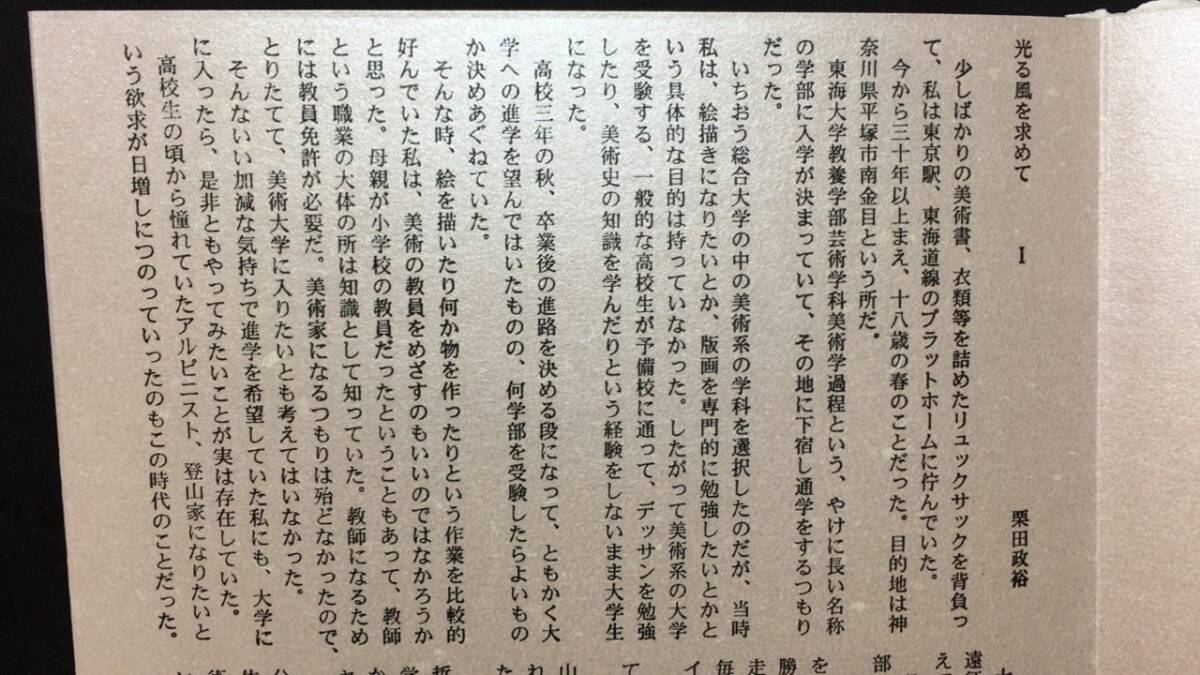 光る風を求めて　Ⅰ
栗田政裕
少しばかりの美術書、衣類等を詰めたリュックサックを背負っ
て、私は東京駅、東海道線のプラットホームに佇んでいた。
今から三十年以上まえ、十八歳の春のことだった。目的地は神
奈川県平塚市南金目という所だ。
東海大学教養学部芸術学科美術学過程という、やけに長い名称
の学部に入学が決まっていて、その地に下宿し通学をするつもり
だった。
いちおう総合大学の中の美術系の学科を選択したのだが、当時
私は、絵描きになりたいとか、版画を専門的に勉強したいとかと
いう具体的な目的は持っていなかった。したがって美術系の大学
を受験する、一般的な高校生が予備校に通って、デッサンを勉強
したり、美術史の知識を学んだりという経験をしないまま大学生
になった。
高校三年の秋、卒業後の進路を決める段になって、ともかく大
学への進学を望んではいたものの、何学部を受験したらよいもの
か決めあぐねていた。
そんな時、絵を描いたり何か物を作ったりという作業を比較的
好んでいた私は、美術の教員をめざすのもいいのではなかろうか
と思った。母親が小学校の教員だったということもあって、教師
という職業の大体の所は知識として知っていた。教師になるため
には教員免許が必要だ。美術家になるつもりは殆どなかったので、
とりたてて、美術大学に入りたいとも考えてはいなかった。
そんないい加減な気持ちで進学を希望していた私にも、大学に
に入ったら、是非ともやってみたいことが実は存在していた。
高校生の頃から憧れていたアルピニスト、登山家になりたいと
いう欲求が日増しにつのっていったのもこの時代のことだった。